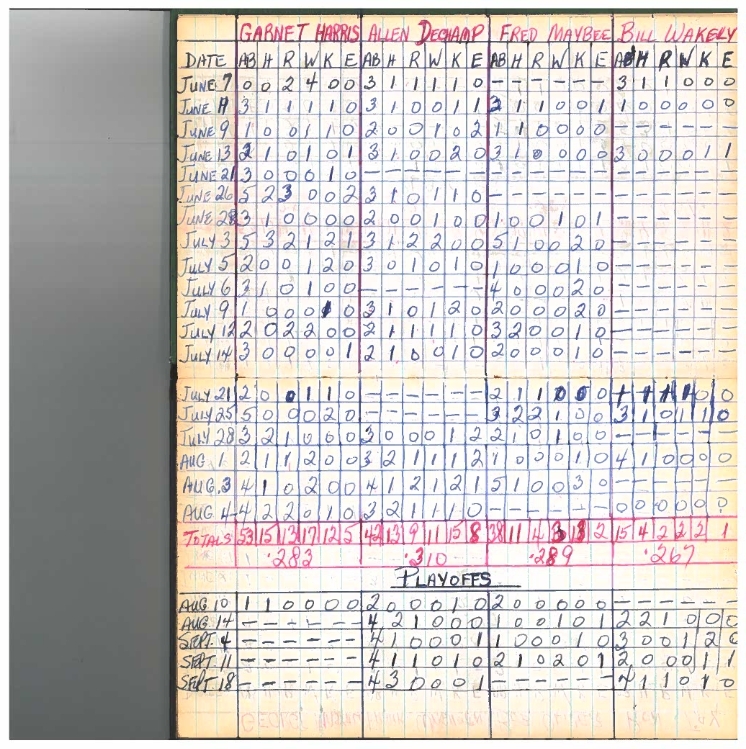 GARNET HARRIS ALLEN DECHAMP FRED MAYBEE BILL WAKELY
DATE AB H R W K E AB H R W K E AB H R W K E AB H R W K E
JUNE 7 0 0 2 4 0 0 3 1 1 1 1 0 – – – – – – 3 1 1 0 0 0
JUNE 3 1 1 1 1 0 3 1 0 0 1 1 2 1 1 0 0 1 1 0 0 0 0 0
JUNE 9 1 0 0 1 1 0 2 0 0 1 0 2 1 1 0 0 0 0 – – – – – –
JUNE 13 2 1 0 1 0 1 3 1 0 0 2 0 3 1 0 0 0 0 3 0 0 0 1 1
JUNE 21 3 0 0 0 1 0 – – – – – – – – – – – – – – – – – –
JUNE 26 5 2 3 0 0 2 3 1 0 1 1 0 – – – – – – – – – – – –
JUNE 28 3 1 0 0 0 0 2 0 0 1 0 0 1 0 0 1 0 1 – – – – – –
JULY 3 5 3 2 1 2 1 3 1 2 2 0 0 5 1 0 0 2 0 – – – – – –
JULY 5 2 0 0 1 2 0 3 0 1 0 1 0 1 0 0 0 1 0 – – – – – –
JULY 6 3 1 0 1 0 0 – – – – – – 4 0 0 0 2 0 – – – – – –
JULY 9 1 0 0 0 1 0 3 1 0 1 2 0 2 0 0 0 2 0 – – – – – –
JULY 12 2 0 2 2 0 0 2 1 1 1 1 0 3 2 0 0 1 0 – – – – – –
JULY 14 3 0 0 0 0 1 2 1 0 0 1 0 2 0 0 0 1 0 – – – – – –
JULY 21 2 0 0 1 1 0 – – – – – – 2 1 1 0 0 0 0 0
JULY 25 5 0 0 0 2 0 – – – – – – 3 2 2 1 0 0 3 1 0 1 1 0
JULY 28 3 2 1 0 0 0 3 0 0 0 1 2 2 1 0 1 0 0 – – – – – –
AUG. 1 2 1 1 2 0 0 3 2 1 1 1 2 1 0 0 0 1 0 4 1 0 0 0 0
AUG. 3 4 1 0 2 0 0 4 1 2 1 2 1 5 1 0 0 3 0 – – – – – –
AUG 4 4 2 2 0 1 0 3 2 1 1 1 0 – – – – – – 0 0 0 0 0 0
TOTALS 53 15 13 17 12 5 42 13 9 11 15 8 38 11 4 3 13 2 15 4 2 2 2 1
.283 .310 .289 .267
PLAYOFFS
AUG 10 1 1 0 0 0 0 2 0 0 0 1 0 2 0 0 0 0 0 – – – – – –
AUG 14 – – – – – – 4 2 1 0 0 0 1 0 0 1 0 1 2 2 1 0 0 0
SEPT. 4 – – – – – – 4 1 0 0 0 1 1 0 0 0 1 0 3 0 0 1 2 0
SEPT. 11 – – – – – – 4 1 1 0 1 0 2 1 0 2 0 1 2 0 0 0 1 1
SEPT. 18 – – – – – – 4 3 0 0 0 1 – – – – – – 4 1 1 0 1 0